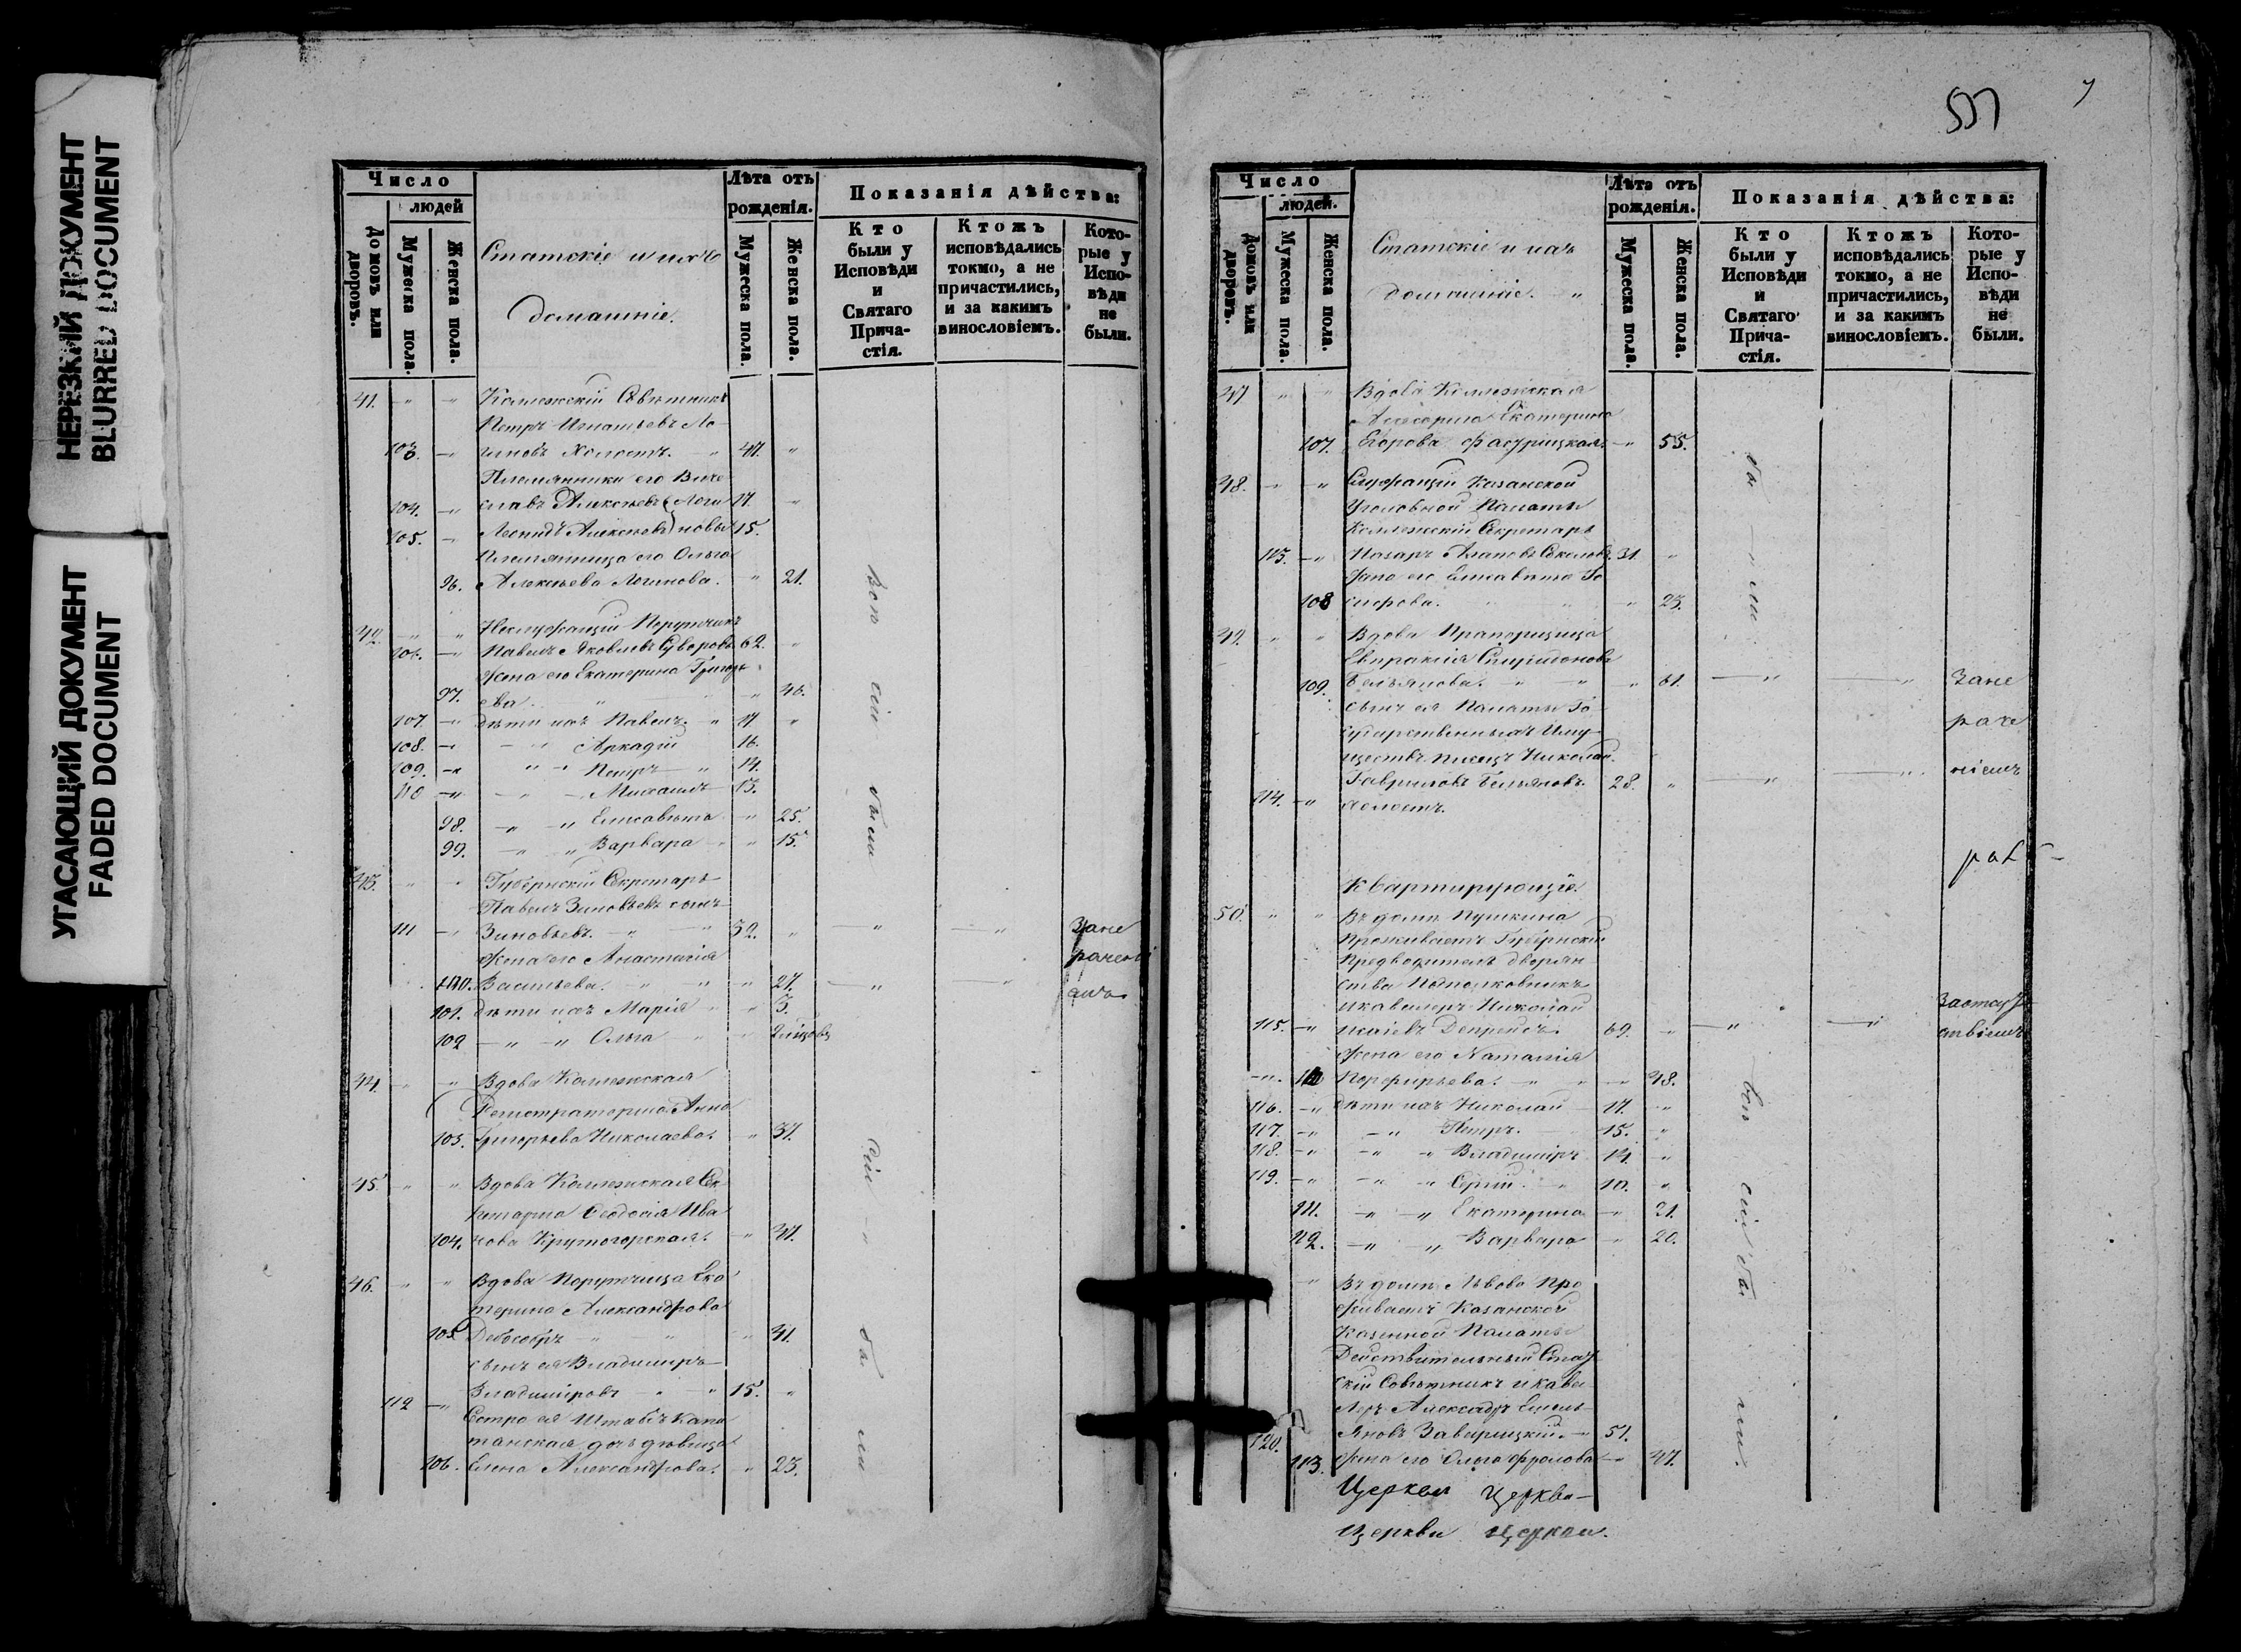 НЕРЕЗКИЙ ДОКУМЕНТ
BLURRED DOCUMENT
УГАСАЮЩИЙ ДОКУМЕНТ
FADED DOCUMENT
Число
людей
Домовъ или дворовъ.
Мужеска пола.
Женска пола.
Статскіе и ихъ
домашніе.
Лѣта отъ
рожденія.
Мужеска пола.
Женска пола.
Показанія дѣйства:
Кто
были у
Исповѣди
и
Святаго
Прича-
стія.
Ктожъ
исповѣдались
токмо, а не
причастились,
и за какимъ
винословіемъ.
Кото-
рые у
Испо-
вѣди
не
были.
41. Коллежскій Совѣтникъ
Петръ Игнатьевъ Ло-
103. гиновъ Холостъ. 41.
Племянники его Вяче
104. славъ Алексѣевъ Логи 17.
105. Леонидъ Алексѣевъ новы 15.
Племянница его Ольга
96. Алексѣева Логинова. 21.
42. Неслужащій Поручикъ
106. Павелъ Яковлевъ Суворовъ 62.
Жена его Екатерина Григорь
97. ева. 46.
107. дѣти ихъ Павелъ 17.
108. Аркадій 16.
109. Петръ 14.
110 Михаилъ 13.
98. Елисавета 25.
99. Варвара 15.
43. Губернскій Секретарь
Павелъ Зиновьевъ сынъ
111 Зиновьевъ. 32. Зане
Жена его Анастасія рачені
100. Васильева. 27. емъ
101. дѣти ихъ Марія 3.
102 Ольга
44. Вдова Коллежская
Регистраторша Анна
103. Григорьева Николаева. 37.
45. Вдова Коллежская Се-
кретарша Ѳеодосія Ива
104. нова Крутогорская. 41.
46. Вдова Поручица Ека
терина Александрова
105. 31.
сынъ ея Владиміръ
112 Владиміровъ 15.
Сестра ея Штабсъ Капи
танская дочь дѣвица
106. Елена Александрова. 23.
всѣ сіи были
сіи бы ли
557
7
Число
людей.
Домовъ или дворовъ.
Мужеска пола.
Женска пола.
Статскіе и ихъ
домашніе.
Лѣта отъ
рожденія.
Мужеска пола.
Женска пола.
Показанія дѣйства:
Кто
были у
Исповѣди
и
Святаго
Прича-
стія.
Ктожъ
исповѣдались
токмо, а не
причастились,
и за какимъ
винословіемъ.
Кото-
рые у
Испо-
вѣди
не
были.
47 Вдова Коллежская
Асессорша Екатерина
107. Егорова 55.
48. Служащій Казанской
Уголовной Палаты
Коллежскій Секретарь
113. Соколовъ. 31.
Жена его Елисавета
108 25.
49. Вдова Прапорщица
Евпраксія Спиридонова
109. Бельянова. 61. Зане
сынъ ея Палаты Го- раче
сударственныхъ Иму-
ществъ писецъ Николай ніемъ
Гавриловъ Бельяновъ. 28.
114. Холостъ.
Квартирующіе
50. Въ домѣ Пушкина
Проживаетъ Губернскій
Предводитель дворян
ства Подполковникъ
и кавалеръ Николай
115. 69.
Жена его Наталія
110 Порфирьева. 48.
116. дѣти ихъ Николай 17.
117. Петръ. 15.
118. Владиміръ 14.
119. Сергій. 10.
111. Екатерина 21.
112. Варвара 20.
Въ домѣ Львова Про
живаетъ Казанской
Казенной Палаты
Действительный Стат
скій Совѣтникъ и кава
леръ Александръ Емель
120. яновъ Заварицкій. 51.
113. Жена его Ольга Фролова 47.
бы ли
всѣ сіи бы ли.
Церкви Церкви
Церкви церкви.